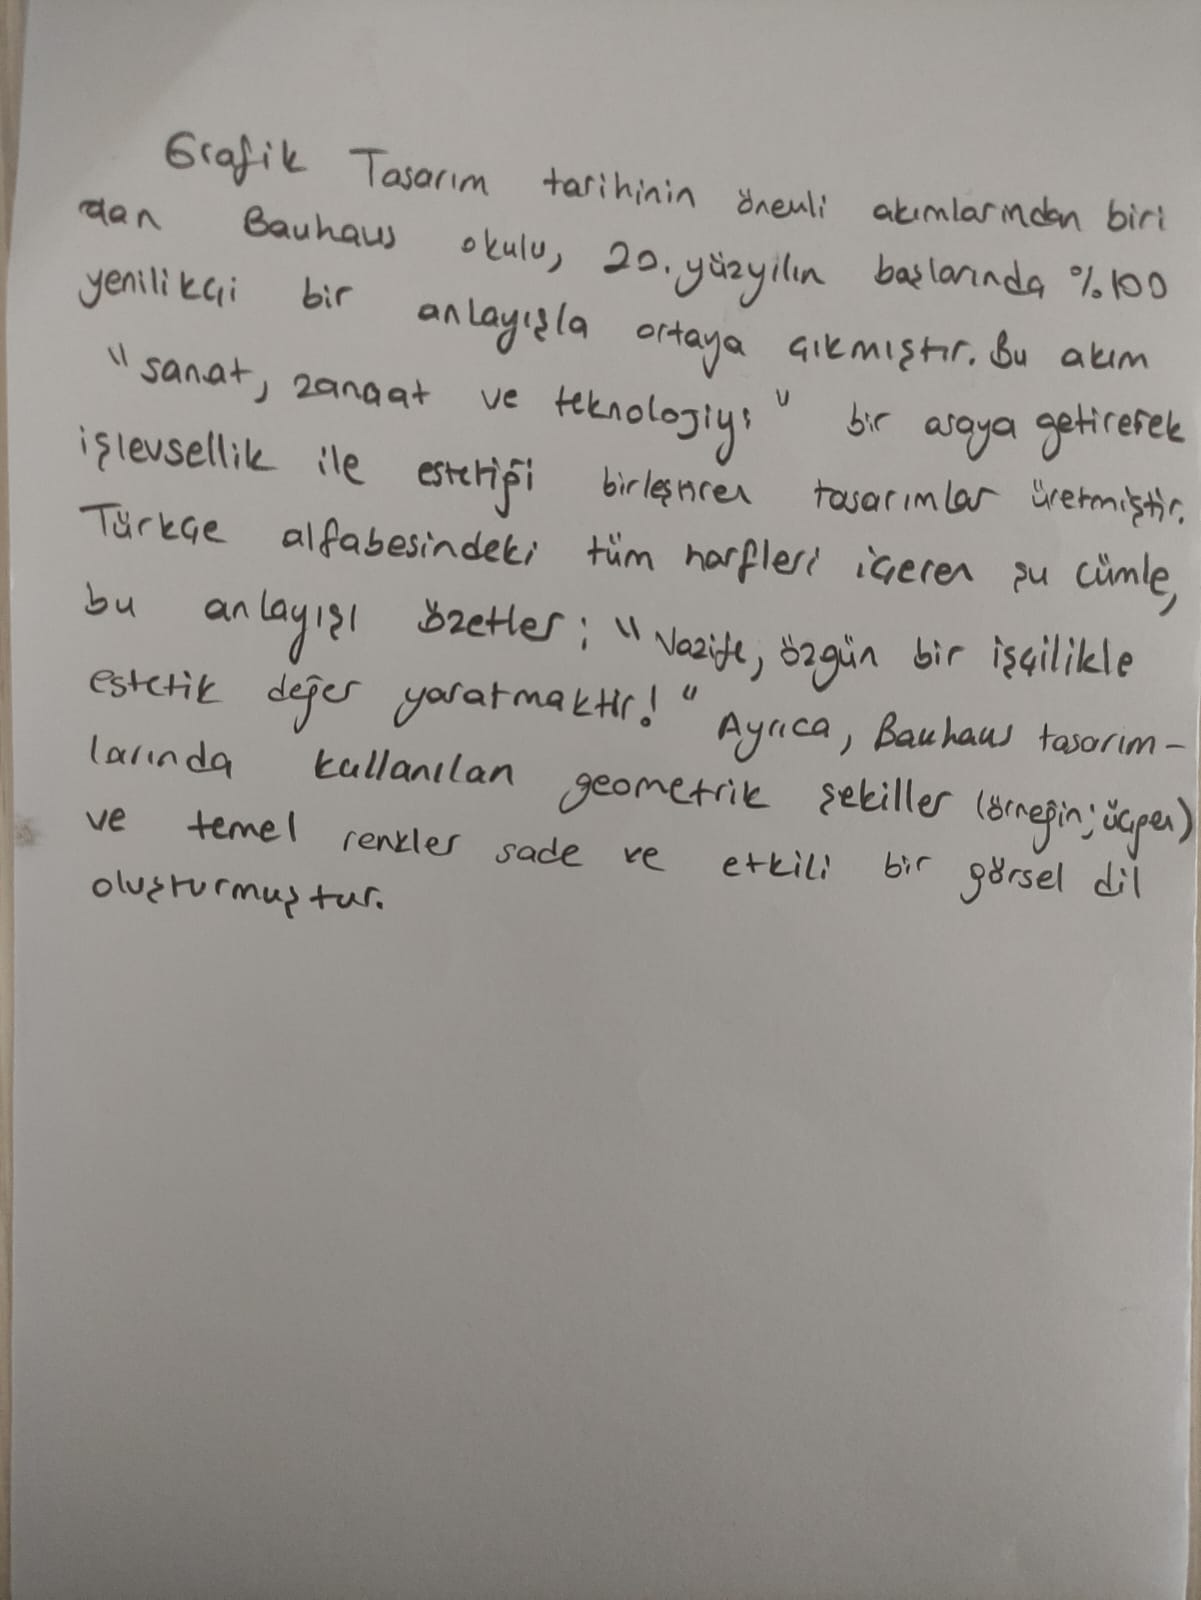 Grafik Tasarım tarihinin önemli akımlarından biri
olan Bauhaus okulu, 20. yüzyılın başlarında %100
yenilikçi bir anlayışla ortaya çıkmıştır. Bu akım
"sanat, zanaat ve teknolojiyi" bir araya getirerek
işlevsellik ile estetiği birleştiren tasarımlar üretmiştir.
Türkçe alfabesindeki tüm harfleri içeren şu cümle,
bu anlayışı özetler; "Vazife, özgün bir işçilikle
estetik değer yaratmaktır!" Ayrıca, Bauhaus tasarım-
larında kullanılan geometrik şekiller (örneğin; üçgen)
ve temel renkler sade ve etkili bir görsel dil
oluşturmuştur.